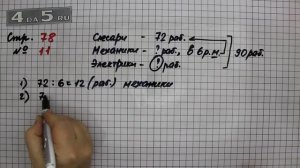 4DA5.RU
Стр. 78
№ 11
Слесари - 72 раб.
Механики - ? раб., в 6 р. м
Электрики - ? раб.
90 раб.
1) 72 : 6 = 12 (раб.) механики
2) 7